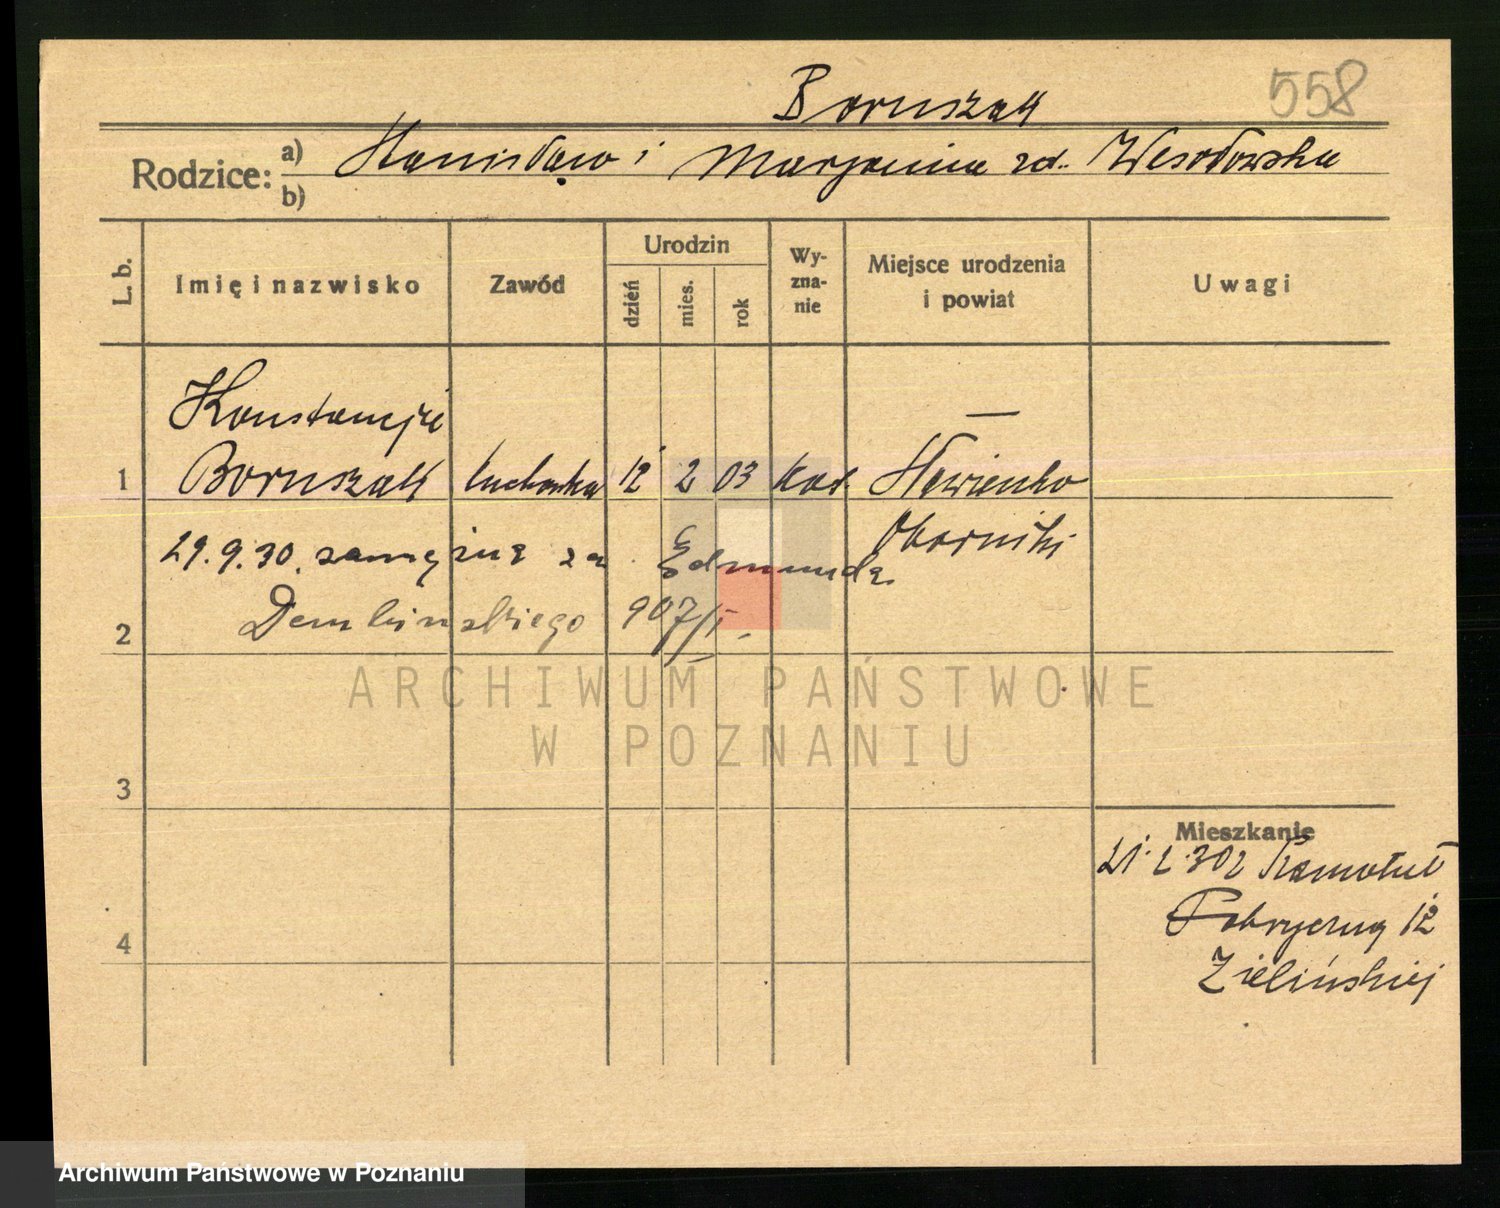 558
Boruszak
Rodzice: a) Stanisław i Marjanna zd. Wesołowska
b)
L. b. Imię i nazwisko Zawód Urodzin dzień mies. rok Wyznanie Miejsce urodzenia i powiat Uwagi
Konstancja —
1 Boruszak kucharka 12 2 03 kat. Sławienko
Oborniki
29.9.30. zamężna za Edmunda
Dembińskiego 907/I.
2
ARCHIWUM PAŃSTWOWE
W POZNANIU
3
Mieszkanie
21.2.30 z
Fabryczna 12
4
Zielińskiej
Archiwum Państwowe w Poznaniu